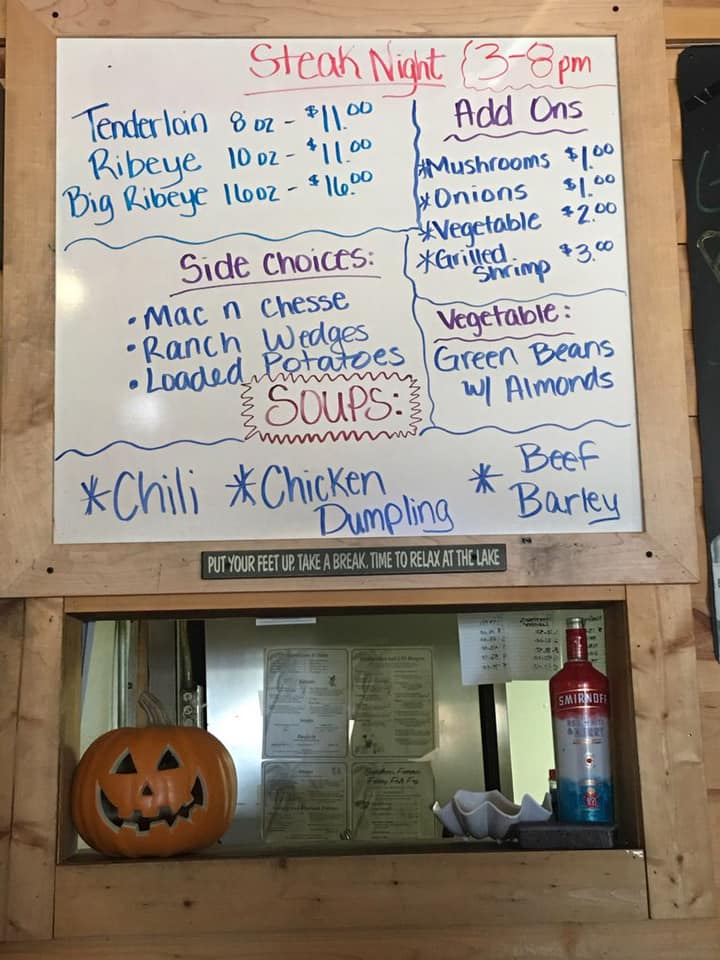 Steak Night 3-8pm
Tenderloin 8oz - $11.00
Ribeye 10oz - $11.00
Big Ribeye 16oz - $16.00
Add Ons
*Mushrooms $1.00
*Onions $1.00
*Vegetable $2.00
*Grilled Shrimp $3.00
Side Choices:
• Mac n Chesse
• Ranch Wedges
• Loaded Potatoes
Vegetable:
Green Beans
w/ Almonds
Soups:
*Chili
*Chicken
Dumpling
* Beef
Barley
PUT YOUR FEET UP. TAKE A BREAK. TIME TO RELAX AT THE LAKE
SMIRNOFF